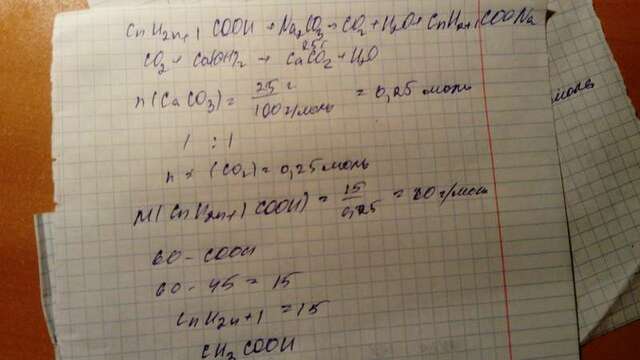 CnH2n+1 COOH + Na2CO3 → CO2 + H2O + CnH2n+1COONa
CO2 + Ca(OH)2 → CaCO2 + H2O
25г
n(CaCO3) = 25 г / 100 г/моль = 0,25 моль
1 : 1
n (CO2) = 0,25 моль
M(CnH2n+1 COOH) = 15 / 0,25 = 60 г/моль
60 - COOH
60 - 45 = 15
CnH2n+1 = 15
CH3 COOH
моль